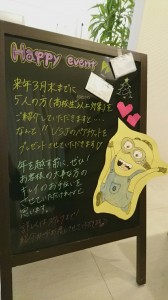 Happy event
来年3月末までに
5人の方(高校生以上対象)を
ご紹介していただきますと…
なんと!! USJのペアチケットを
プレゼントさせていただきます
年を越す前に、ぜひ!
お客様の大事な方の
キレイのお手伝いを
させていただけたらと
思います。